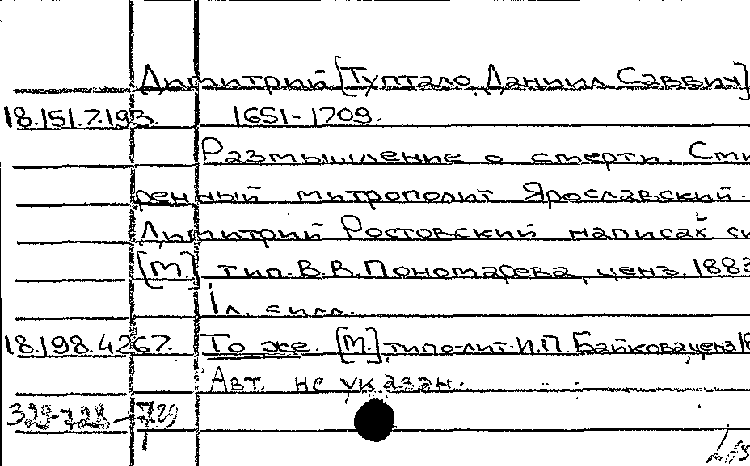 Димитрий [Туптало, Даниил Саввич]
18.151.7.193. 1651-1709.
Размышление о смерти. Сми
ренный митрополит Ярославский
Димитрий Ростовский написах си
[М] тип. В.В. Пономарева, ценз. 1883
1л. илл.
18.198.4.267. То же. [М], типо-лит. И.П. Байкова, ценз. 18
Авт. не указан.